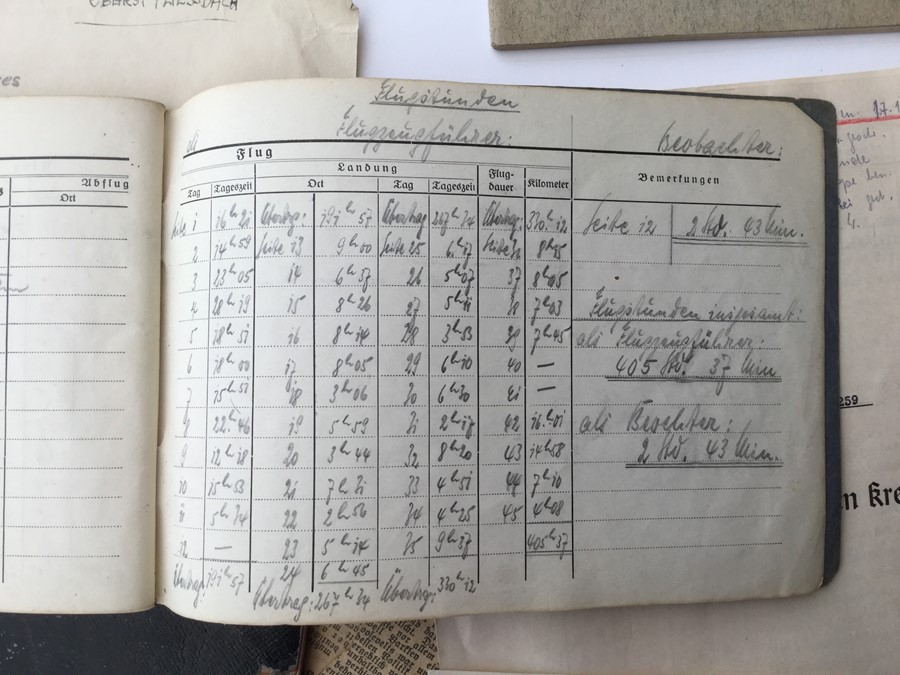 OBERST
Flugstunden
als Flugzeugführer:
Beobachter:
Abflug
Ort
Flug
Landung
Flug-dauer
Kilometer
Bemerkungen
Tag Tageszeit Ort Tag Tageszeit
Seite 1 16h 21 Übertrag: 191h 57 Übertrag 267h 34 Übertrag: 330h 12 Seite 12 2 Std. 43 Min.
2 14h 59 Seite 13 9h 00 Seite 25 6h 17 Seite 36 8h 45
3 23h 05 14 6h 37 26 5h 07 37 8h 05
4 28h 19 15 8h 26 27 5h 11 38 7h 03 Flugstunden insgesamt:
5 18h 51 16 8h 14 28 3h 53 39 7h 45 als Flugzeugführer:
6 18h 00 17 8h 05 29 6h 10 40 — 405 Std. 37 Min
7 15h 51 18 3h 06 30 6h 30 41 —
8 22h 46 19 5h 59 31 2h 17 42 16h 01 als Beobachter:
9 12h 18 20 3h 44 32 8h 20 43 14h 58 2 Std. 43 Min.
10 15h 53 21 7h 31 33 4h 51 44 7h 10
11 5h 34 22 2h 56 34 4h 25 45 4h 08
12 — 23 5h 14 35 9h 37 405h 37
Übertrag: 191h 57 24 6h 45
Übertrag: 267h 34 Übertrag: 330h 12
259
n Kre